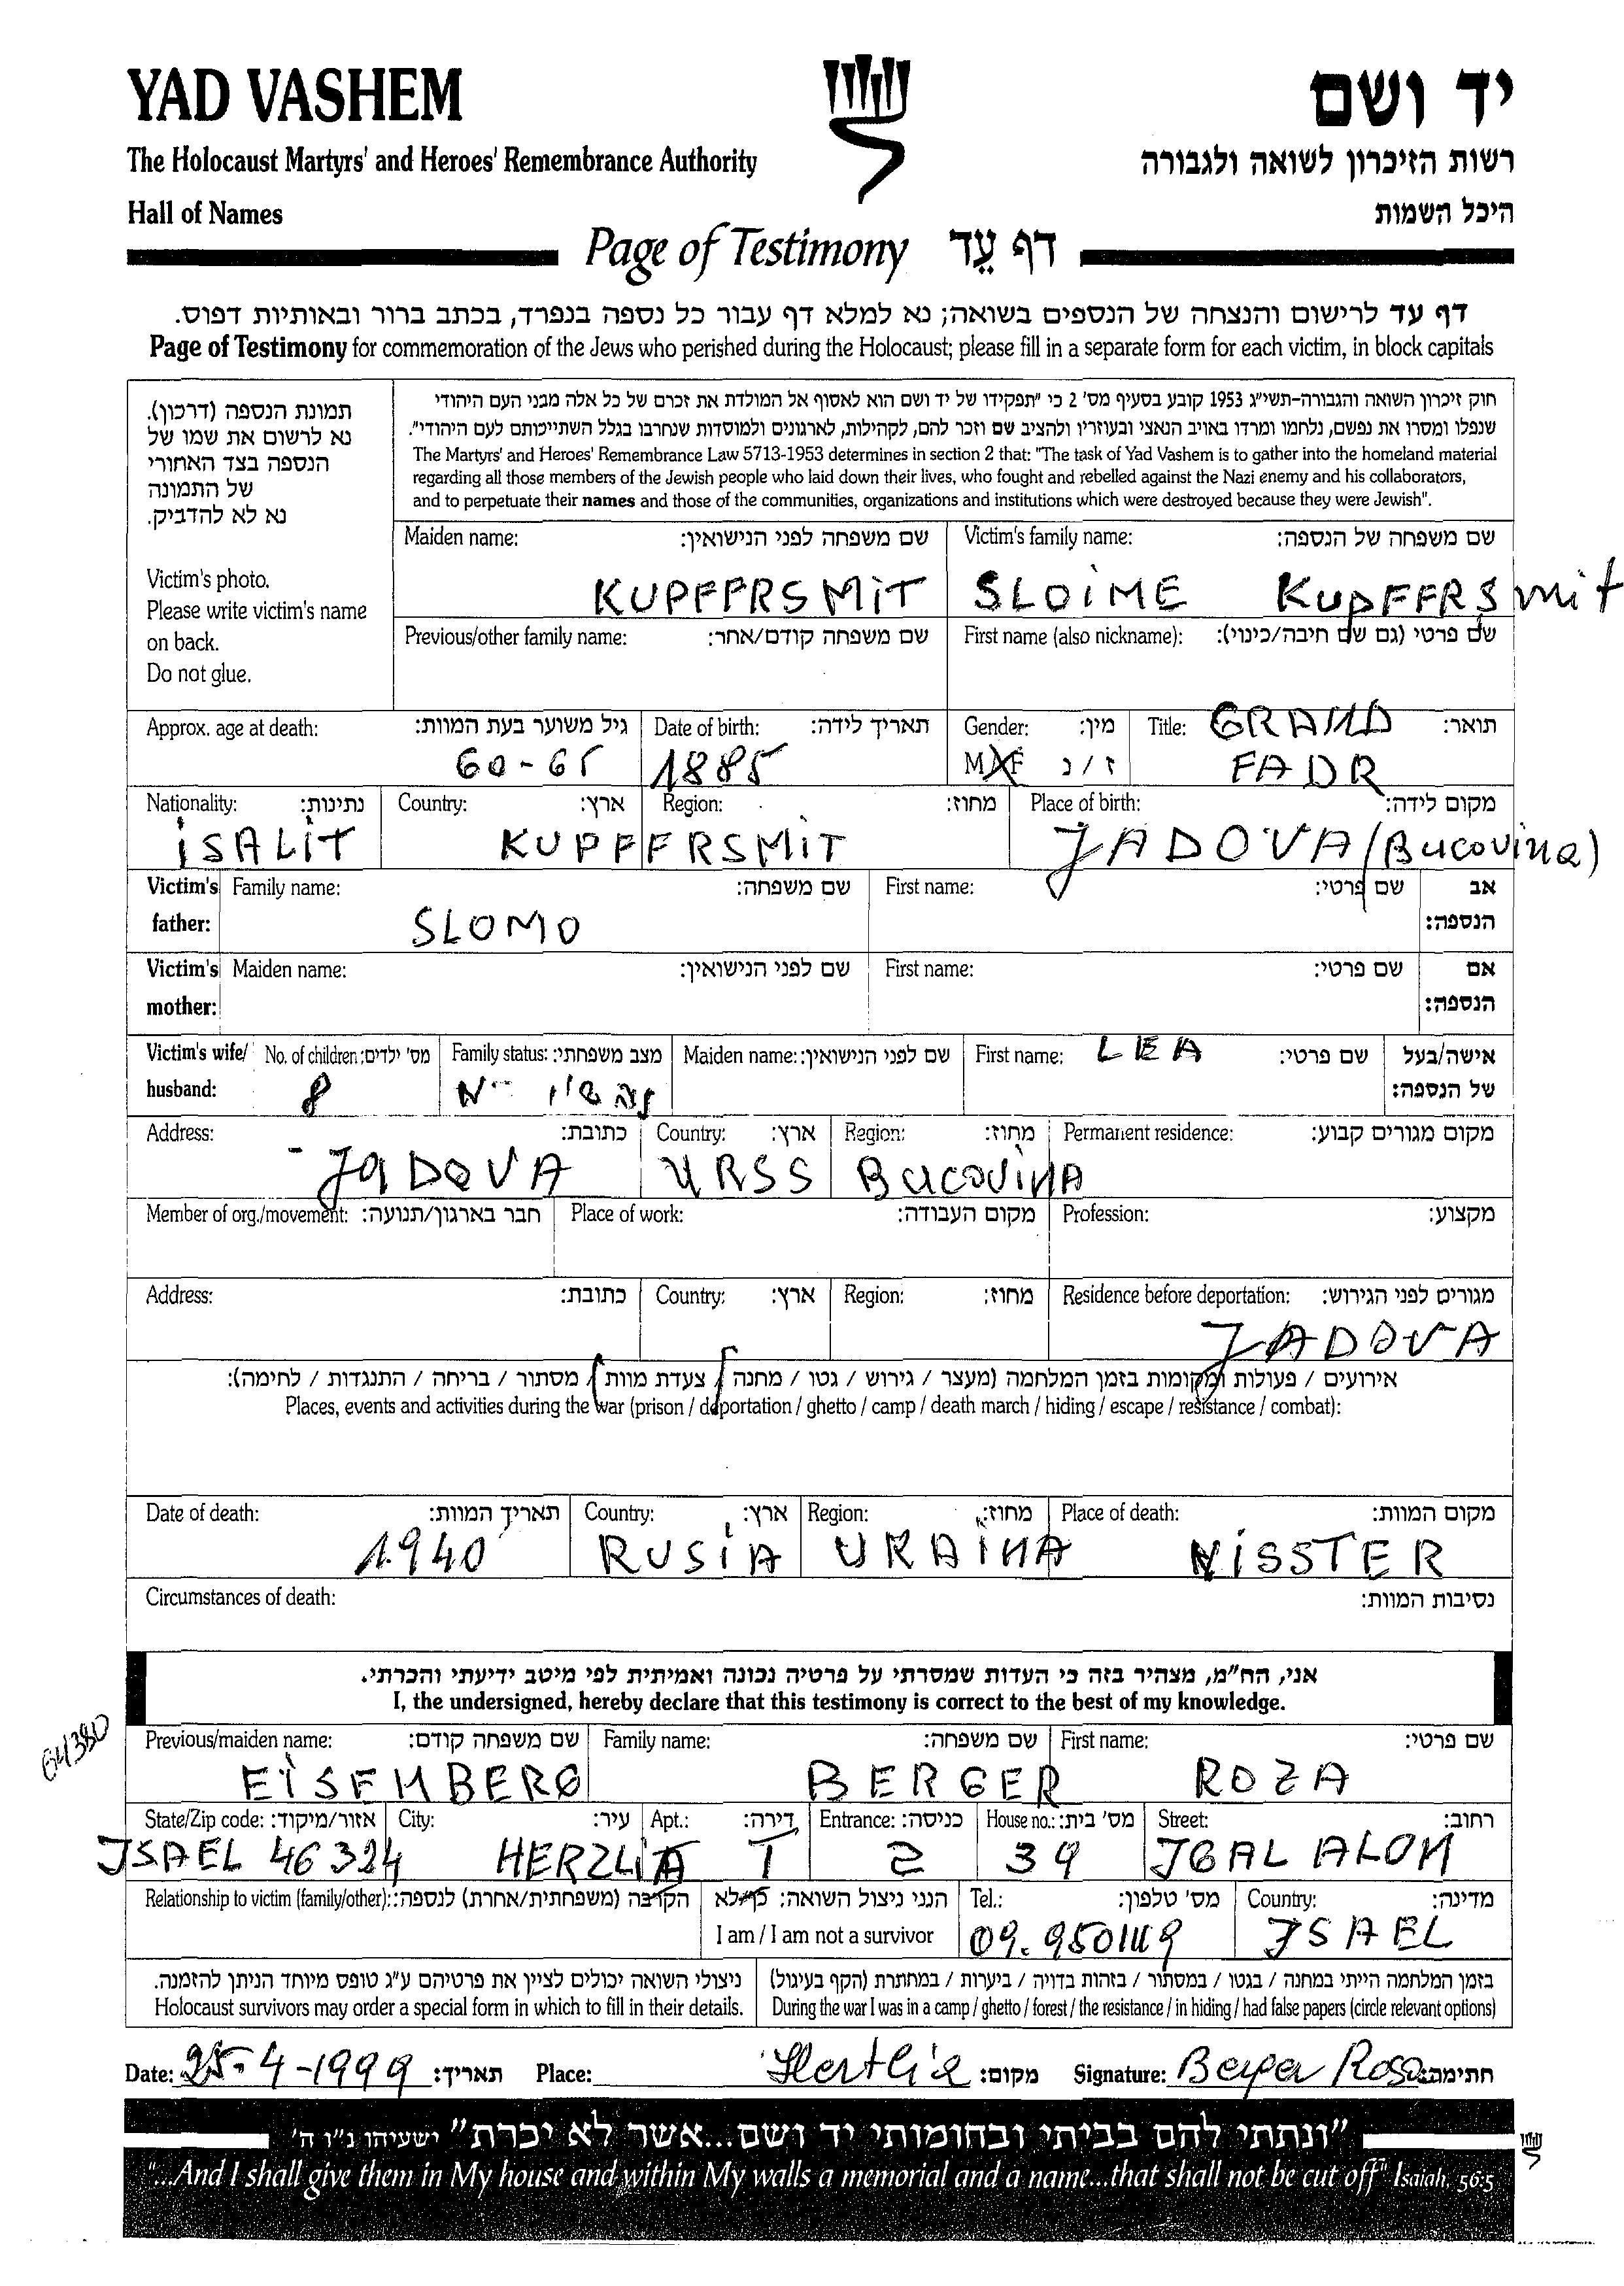 YAD VASHEM
יד ושם
The Holocaust Martyrs' and Heroes' Remembrance Authority
רשות הזיכרון לשואה ולגבורה
Hall of Names
היכל השמות
Page of Testimony דף עֵד
דף עד לרישום והנצחה של הנספים בשואה; נא למלא דף עבור כל נספה בנפרד, בכתב ברור ובאותיות דפוס.
Page of Testimony for commemoration of the Jews who perished during the Holocaust; please fill in a separate form for each victim, in block capitals
תמונת הנספה (דרכון).
נא לרשום את שמו של
הנספה בצד האחורי
של התמונה
נא לא להדביק.
Victim's photo.
Please write victim's name
on back.
Do not glue.
חוק זיכרון השואה והגבורה-תשי״ג 1953 קובע בסעיף מס' 2 כי "תפקידו של יד ושם הוא לאסוף אל המולדת את זכרם של כל אלה מבני העם היהודי
שנפלו ומסרו את נפשם, נלחמו ומרדו באויב הנאצי ובעוזריו ולהציב שם וזכר להם, לקהילות, לארגונים ולמוסדות שנחרבו בגלל השתייכותם לעם היהודי".
The Martyrs' and Heroes' Remembrance Law 5713-1953 determines in section 2 that: "The task of Yad Vashem is to gather into the homeland material
regarding all those members of the Jewish people who laid down their lives, who fought and rebelled against the Nazi enemy and his collaborators,
and to perpetuate their names and those of the communities, organizations and institutions which were destroyed because they were Jewish".
Maiden name: שם משפחה לפני הנישואין: Victim's family name: שם משפחה של הנספה:
KUPFFRSMIT SLOIME KUPFFRSmit
Previous/other family name: שם משפחה קודם/אחר: First name (also nickname): שם פרטי (גם שם חיבה/כינוי):
Approx. age at death: גיל משוער בעת המוות: Date of birth: תאריך לידה: Gender: מין: Title: GRAND תואר:
60-65 1885 M/F ז/נ FADR
Nationality: נתינות: Country: ארץ: Region: מחוז: Place of birth: מקום לידה:
ISALIT KUPFFRSMIT JADOVA (Bucovina)
Victim's father: Family name: שם משפחה: First name: שם פרטי: אב הנספה:
SLOMO
Victim's mother: Maiden name: שם לפני הנישואין: First name: שם פרטי: אם הנספה:
Victim's wife/ husband: No. of children: מס' ילדים: Family status: מצב משפחתי: Maiden name: שם לפני הנישואין: First name: LEA שם פרטי: אישה/בעל של הנספה:
8
Address: כתובת: Country: ארץ: Region: מחוז: Permanent residence: מקום מגורים קבוע:
JADOVA URSS BucoviNA
Member of org./movement: חבר בארגון/תנועה: Place of work: מקום העבודה: Profession: מקצוע:
Address: כתובת: Country: ארץ: Region: מחוז: Residence before deportation: מגורים לפני הגירוש:
JADOVA
אירועים / פעולות ומקומות בזמן המלחמה (מעצר / גירוש / גטו / מחנה / צעדת מוות / מסתור / בריחה / התנגדות / לחימה):
Places, events and activities during the war (prison / deportation / ghetto / camp / death march / hiding / escape / resistance / combat):
Date of death: תאריך המוות: Country: ארץ: Region: מחוז: Place of death: מקום המוות:
1940 RUSIA URAINA NISSTER
Circumstances of death: נסיבות המוות:
אני, הח"מ, מצהיר בזה כי העדות שמסרתי על פרטיה נכונה ואמיתית לפי מיטב ידיעתי והכרתי.
I, the undersigned, hereby declare that this testimony is correct to the best of my knowledge.
64380
Previous/maiden name: שם משפחה קודם: Family name: שם משפחה: First name: שם פרטי:
EISEMBERG BERGER ROZA
State/Zip code: אזור/מיקוד: City: עיר: Apt.: דירה: Entrance: כניסה: House no.: מס' בית: Street: רחוב:
ISAEL 46324 HERZLIA 1 2 39 IGAL ALON
Relationship to victim (family/other): הקרבה (משפחתית/אחרת) לנספה: הנני ניצול השואה: כן/לא Tel.: מס' טלפון: Country: מדינה:
I am / I am not a survivor
09.950149 ISAEL
ניצולי השואה יכולים לציין את פרטיהם ע"ג טופס מיוחד הניתן להזמנה.
Holocaust survivors may order a special form in which to fill in their details.
בזמן המלחמה הייתי במחנה / בגטו / במסתור / בזהות בדויה / ביערות / במחתרת (הקף בעיגול)
During the war I was in a camp / ghetto / forest / the resistance / in hiding / had false papers (circle relevant options)
Date: 25-4-1999 תאריך: Place: Hertlia מקום: Signature: Berger Rosa חתימה:
"ונתתי להם בביתי ובחומותי יד ושם...אשר לא יכרת" ישעיהו נ"ו ה'
"...And I shall give them in My house and within My walls a memorial and a name...that shall not be cut off" Isaiah, 56:5